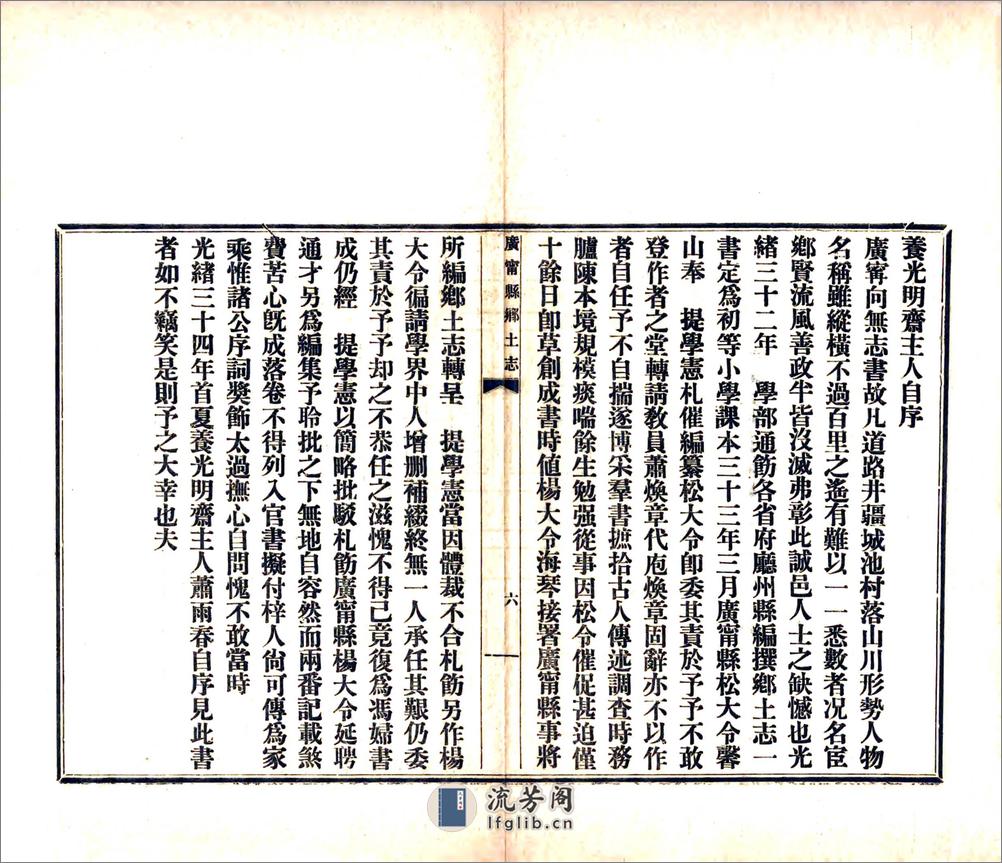 養光明齋主人自序
廣甯向無志書故凡道路井疆城池村落山川形勢人物
名稱雖縱橫不過百里之遙有難以一一悉數者况名宦
鄉賢流風善政半皆沒滅弗彰此誠邑人士之缺憾也光
緒三十二年　學部通飭各省府廳州縣編撰鄉土志一
書定爲初等小學課本三十三年三月廣甯縣松大令馨
山奉　提學憲札催編纂松大令卽委其責於予予不敢
登作者之堂轉請教員蕭煥章代庖煥章固辭亦不以作
者自任予不自揣遂博采羣書摭拾古人傳述調查時務
臚陳本境規模痰喘餘生勉强從事因松令催促甚迫僅
十餘日卽草創成書時値楊大令海琴接署廣甯縣事將
廣甯縣鄉土志
六
所編鄉土志轉呈　提學憲當因體裁不合札飭另作楊
大令徧請學界中人增删補綴終無一人承任其艱仍委
其責於予予却之不恭任之滋愧不得已竟復爲馮婦書
成仍經　提學憲以簡略批駁札飭廣甯縣楊大令延聘
通才另爲編集予聆批之下無地自容然而兩番記載煞
費苦心旣成落卷不得列入官書擬付梓人尙可傳爲家
乘惟諸公序詞獎飾太過撫心自問愧不敢當時
光緒三十四年首夏養光明齋主人蕭雨春自序見此書
者如不竊笑是則予之大幸也夫
流芳阁
lfglib.cn